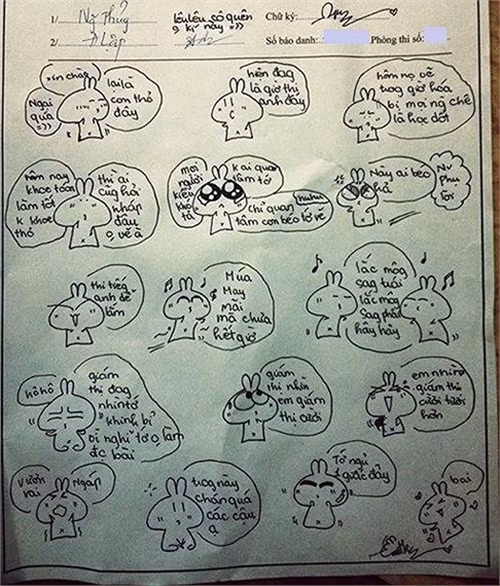 1/ Ng Thủy
lêu lêu số quên
kí này =))
Chữ ký:
2/
Số báo danh: Phòng thi số:
xin chào
Ngại
quá =))
lại là
con thỏ
đây
hiện đag
là giờ thi
anh đây
hôm nọ vẽ
trog giờ hóa
bị mọi ng chê
là học dốt
hôm nay
khoe toán
làm tốt
k khoe
thó
thì ai
cũg hỏi
kháp
đâu
vẽ à
mọi
người
kiểu
k ai quan
tâm tớ
huhu
chỉ quan
tâm con béo lợ vẽ
Này ai béo
hả
thi tiếng
anh dễ
lắm
Múa
May
Mãi
mà chưa
hết giờ
lắc môg
sag trái
lắc môg
sag phải
hây hây
hô hô
giám
thị đag
nhìn tớ
khinh bỉ
bị nghi tớ o làm
đc bài
giám
thị nhìn
em giám
thị cười
em nhìn
giám thị
cười tươi
hơn
Vươn
vai
Ngáp
trog này
chán quá
các cậu
ạ
Tớ ngủ
giấc đây
bai